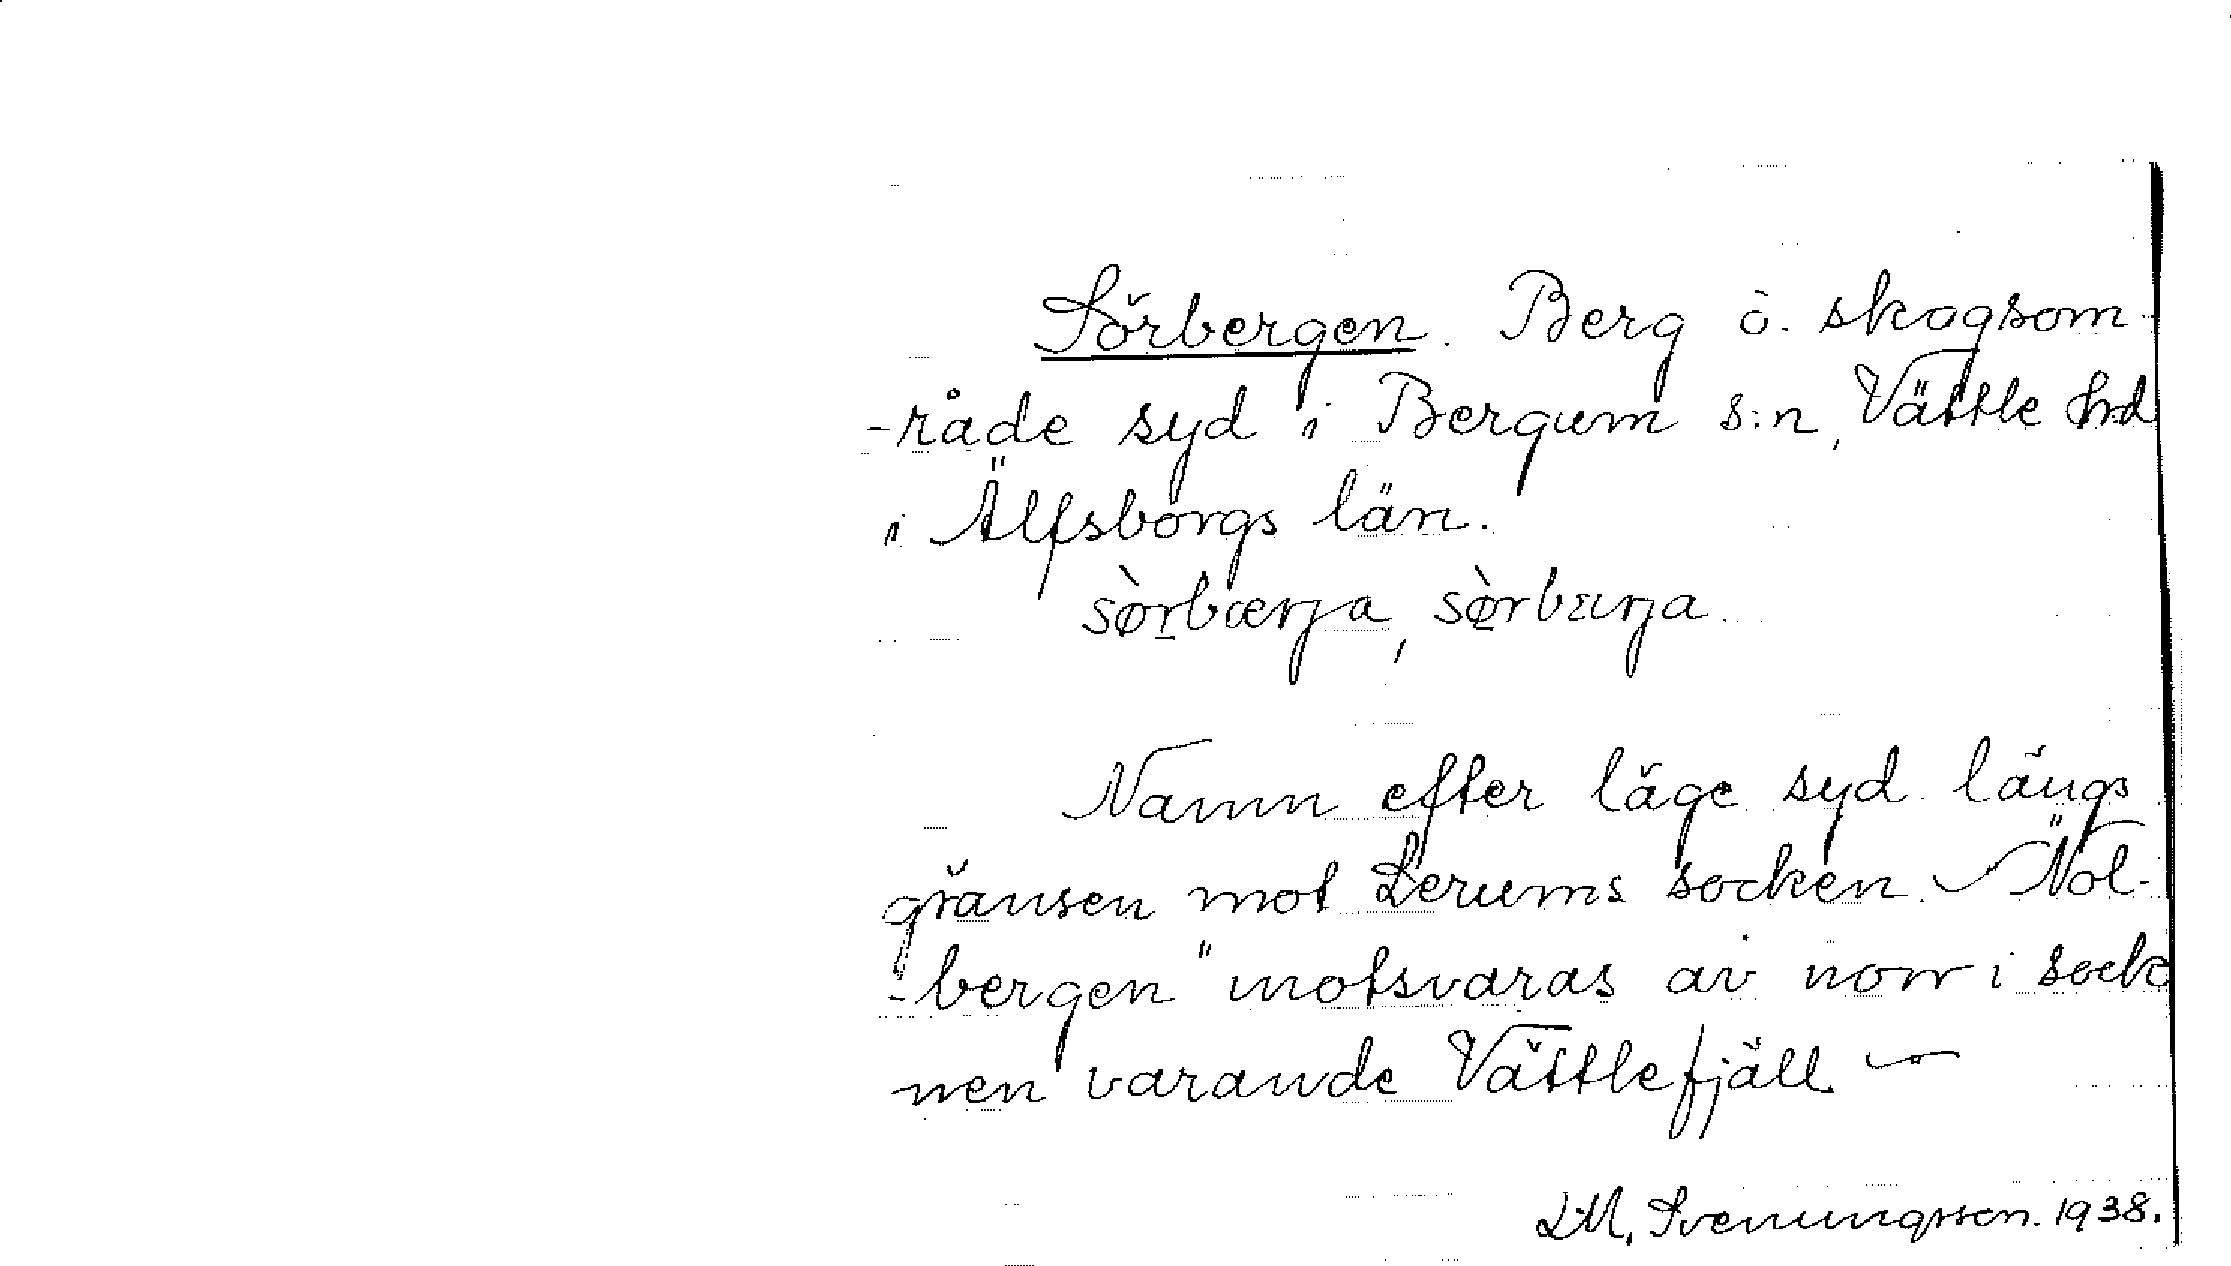 Sörbergen. Berg o. skogsom-
-råde syd i Bergum s:n, Vättle hd
i Älfsborgs län.
sø̀rbærja, sø̀rbærja.
Namn efter läge syd längs
gränsen mot Lerums socken. "Nol-
-bergen" motsvaras av norr i sock
nen varande Vättlefjäll
LM, Svenungsson. 1938.